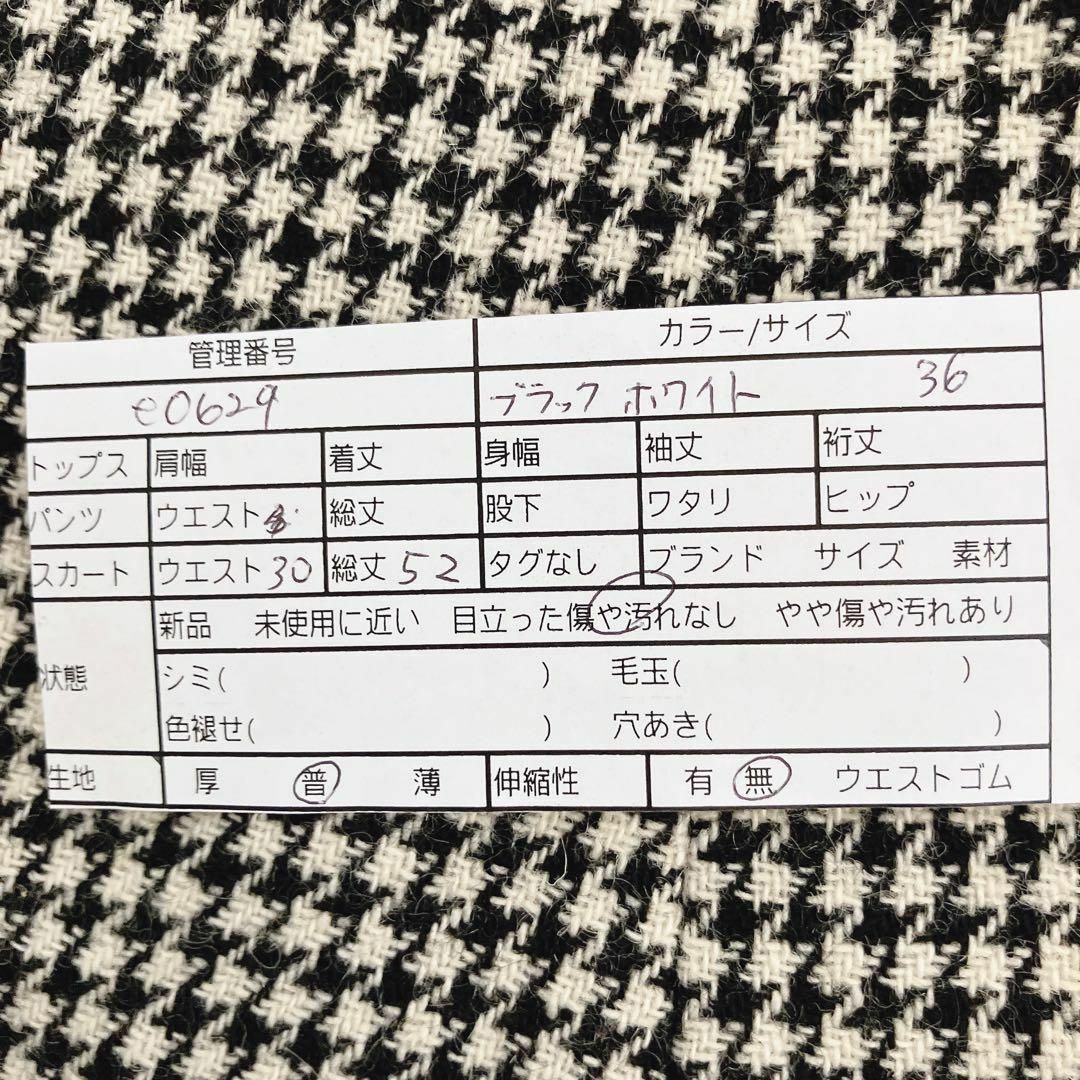 管理番号 カラー/サイズ
e0629 ブラック ホワイト 36
トップス 肩幅 着丈 身幅 袖丈 裄丈
パンツ ウエスト 総丈 股下 ワタリ ヒップ
スカート ウエスト 30 総丈 52 タグなし ブランド サイズ 素材
新品 未使用に近い 目立った傷や汚れなし やや傷や汚れあり
状態 シミ( ) 毛玉( )
色褪せ( ) 穴あき( )
生地 厚 普 薄 伸縮性 有 無 ウエストゴム